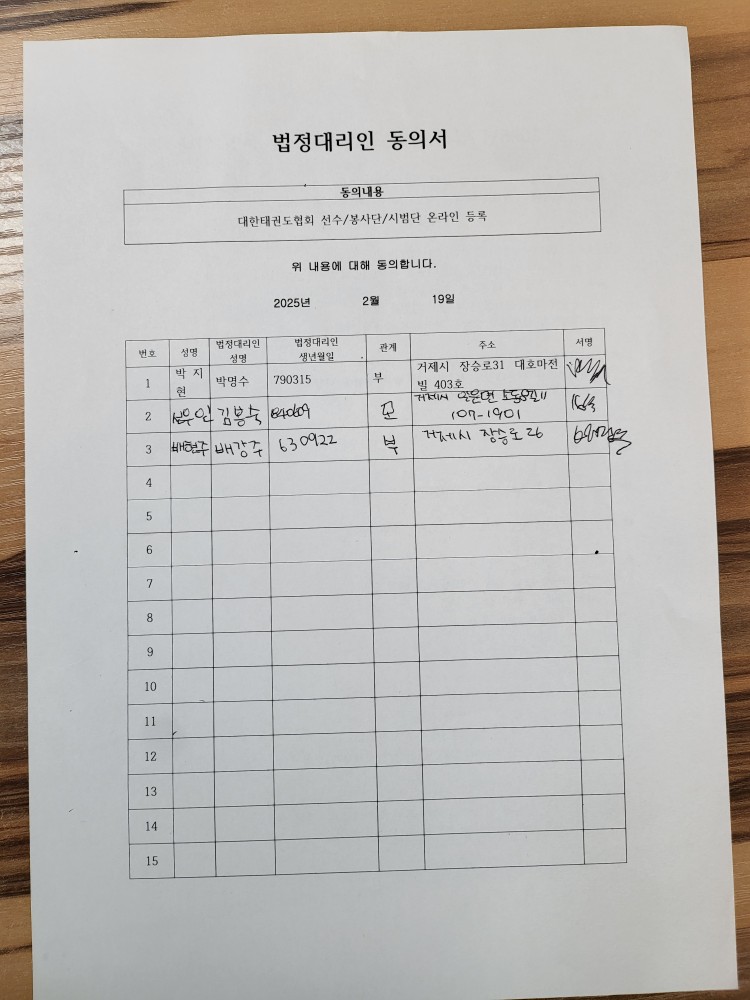 법정대리인 동의서
동의내용
대한태권도협회 선수/봉사단/시범단 온라인 등록
위 내용에 대해 동의합니다.
2025년 2월 19일
번호 성명 법정대리인 성명 법정대리인 생년월일 관계 주소 서명
1 박 지 현 박명수 790315 부 거제시 장승로31 대호마전빌 403호
2 김봉숙 840609 모 거제시 일운면 107-1901
3 배현주 배강주 630922 부 거제시 장승로 26
4
5
6
7
8
9
10
11
12
13
14
15